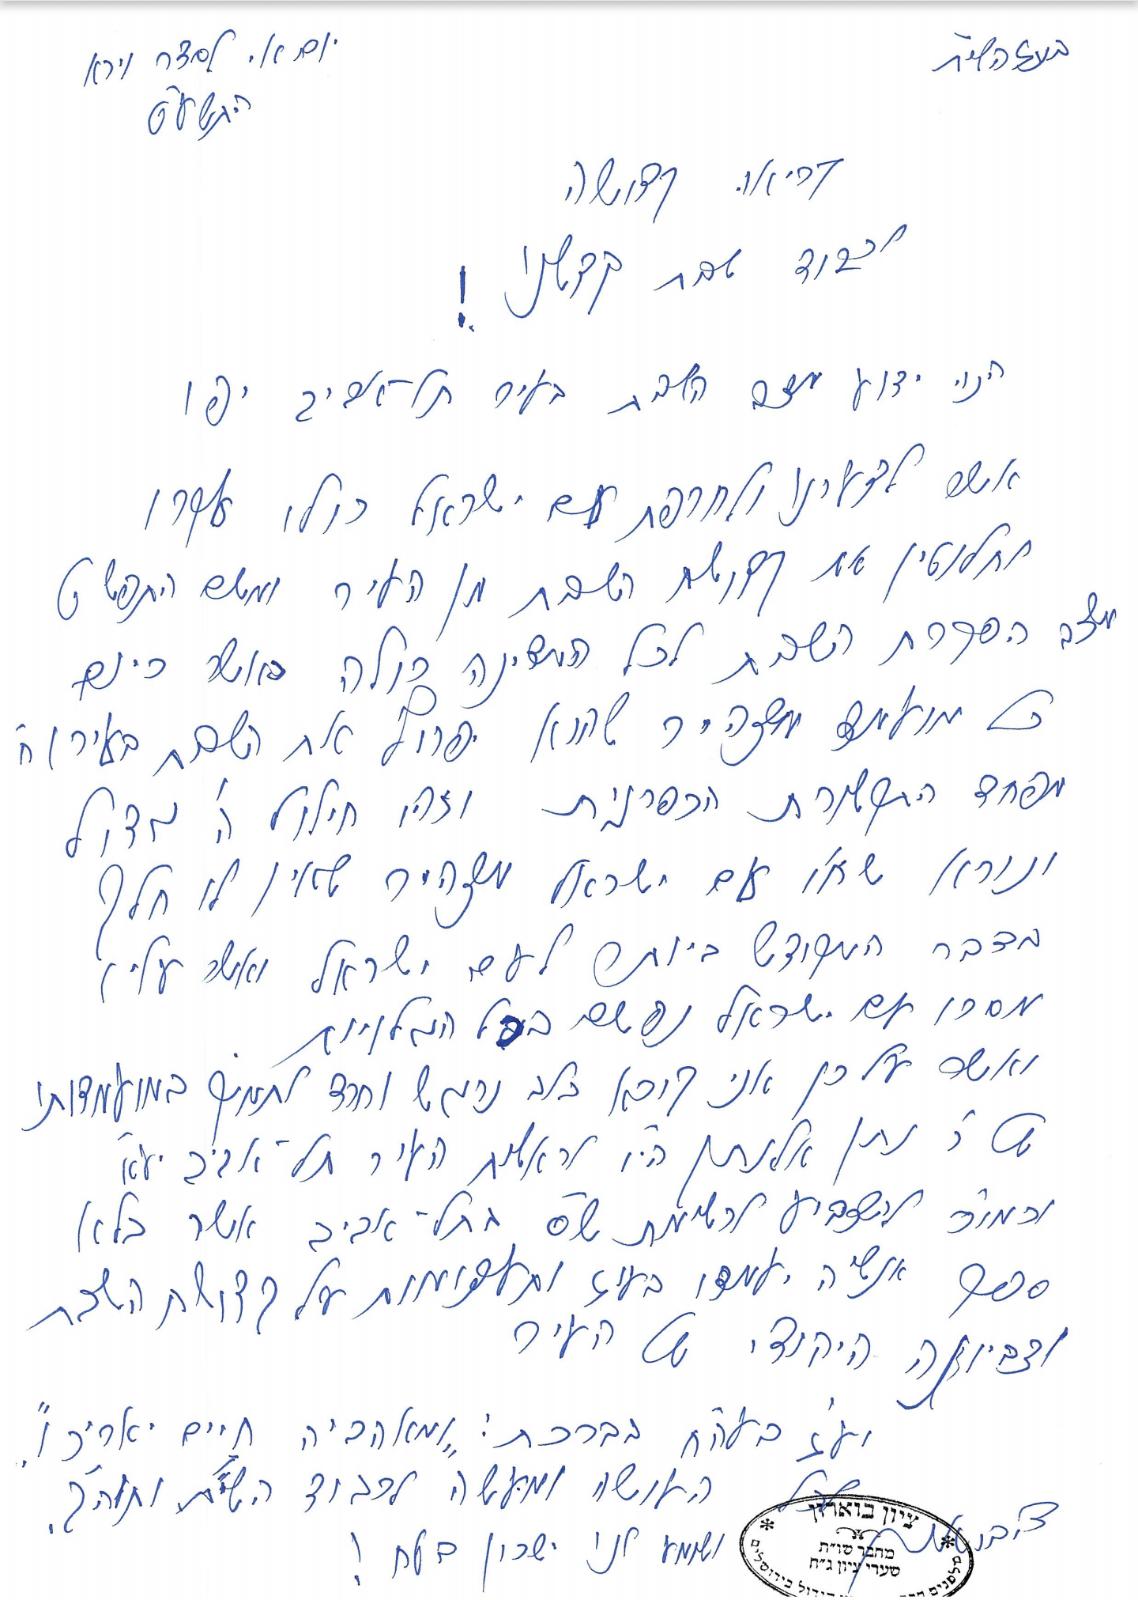 בעזהשי״ת
יום א׳ לסדר וירא
התשע״ט
קריאה קדושה
לכבוד שבת קדשנו !
הנה ידוע מצב השבת בעיר תל-אביב יפו
אשר לצערינו ולחרפת עם ישראל כולו עקרו
לחלוטין את קדושת השבת מן העיר ומשם התפשט
מצב הפקרת השבת לכל המדינה כולה כאשר כיום
כל מועמד מצהיר שהוא יפרוץ את השבת בעירו ח״ו
מפחד התקשורת הכפרנית וזהו חילול ה׳ גדול
ונורא שעם ישראל מצהיר שאין לו חלק
בדבר המקודש ביותר לעם ישראל ואשר עליו
מסרו עם ישראל נפשם בכל הגלויות
ואשר על כן אני קורא בלב נרגש וחרד לתמוך במועמדותו
של ר׳ נתן אלנתן הי״ו לראשות העיר תל-אביב יע״א
וכמו״כ להצביע לרשימת ש״ס בתל-אביב אשר בלא
ספק אנשיה יעמדו בעוז ותעצומות על קדושת השבת
וצביונה היהודי של העיר
וע״ז בעה״ח בברכת: ״ומאהביה חיים יאריכו״.
העושה ומעשה לכבוד השי״ת ותוה״ק.
ושומע לנו ישכון בטח !
ציון בוארון
מחבר שו״ת
שערי ציון ג״ח